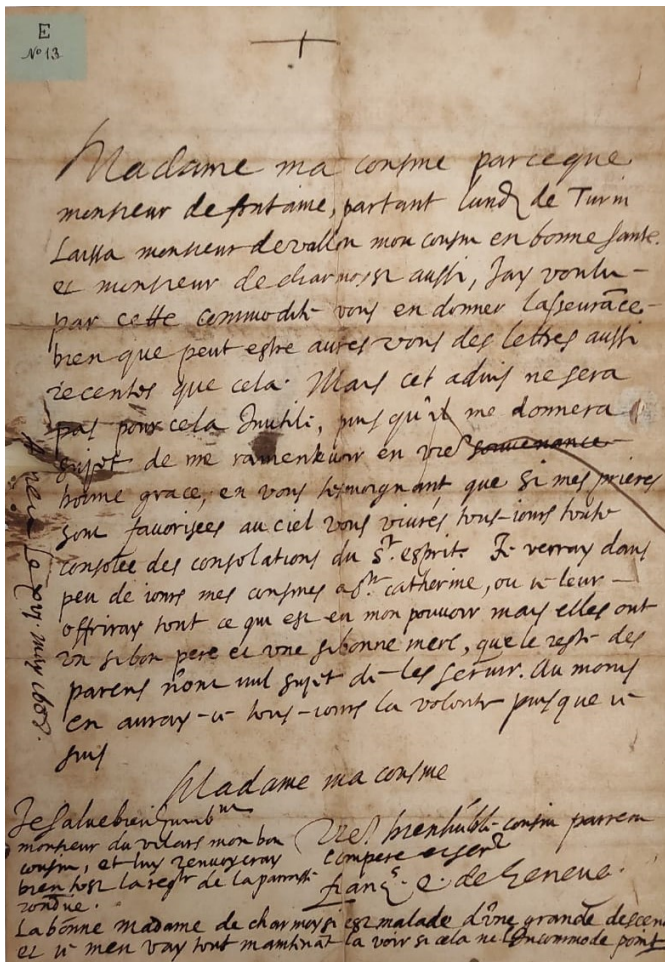 E
No 13
Madame ma cousine parceque
monsieur de fontaine, partant lundy de Turin
Laissa monsieur devallon mon cousin en bonne sante.
et monsieur de charmoisi aussi, Jay voulu
par cette commodite vous en donner lasseurāce
bien que peut estre aures vous des lettres aussi
recentes que cela. Mais cet advis ne sera
pas pour cela Inutile, puis qu'il me donnera
sujet de me ramentevoir en vre souvenance
bonne grace, en vous tesmoignant que si mes prieres
sont favorisees au ciel vous vivres tous-iours toute
consolee des consolations du St. esprit. Je verray dans
peu de iours mes cousines a Ste catherine, ou ie leur
offriray tout ce qui est en mon pouvoir mays elles ont
un si bon pere et une si bonne mere, que le reste des
parens n'ont nul sujet de les servir. Au moins
en auray-ie tous-iours la volonte puisque ie
suis
Madame ma cousine
Vre bien hūble cousin parrein
compere et serr
franҫs. e. de Geneve.
Je salue bien humblmt
monsieur du vilars mon bon
cousin, et luy renvoyeray
bien tost la regle de la parroisse
La bonne madame de charmoysi est malade d'une grande
et ie m'en vay tout maintenāt la voir si cela ne l'Incommode point